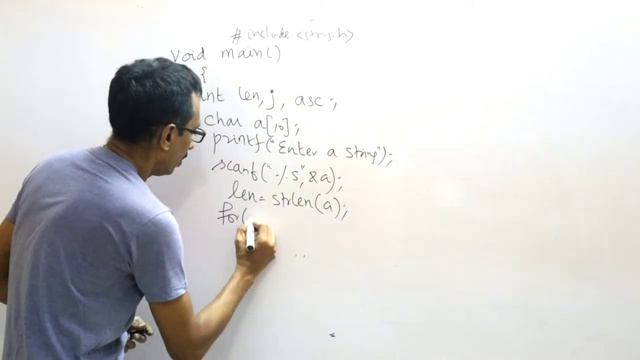 #include <string.h>
void main()
{
int len, j, asc;
char a[10];
printf("Enter a string");
scanf("%s", &a);
len = strlen(a);
for(